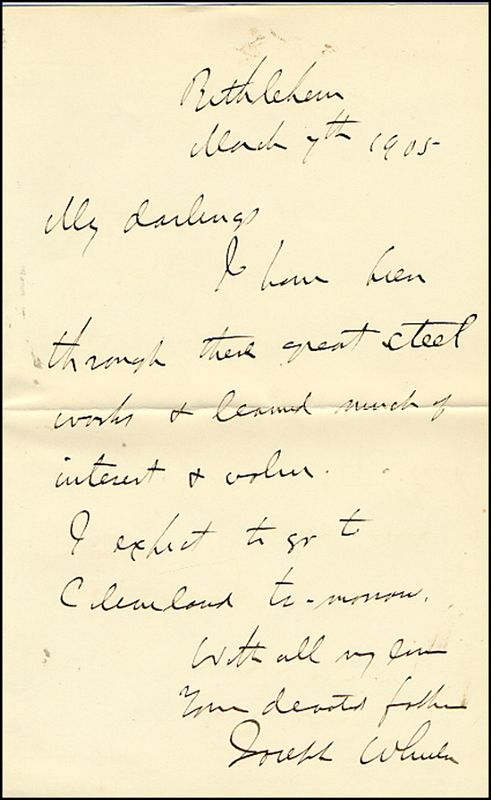 Bethlehem
March 7th 1905
My darlings
I have been
through these great steel
works & learned much of
interest & value.
I expect to go to
Cleveland to-morrow.
With all my love
Your devoted father
Joseph Wheeler